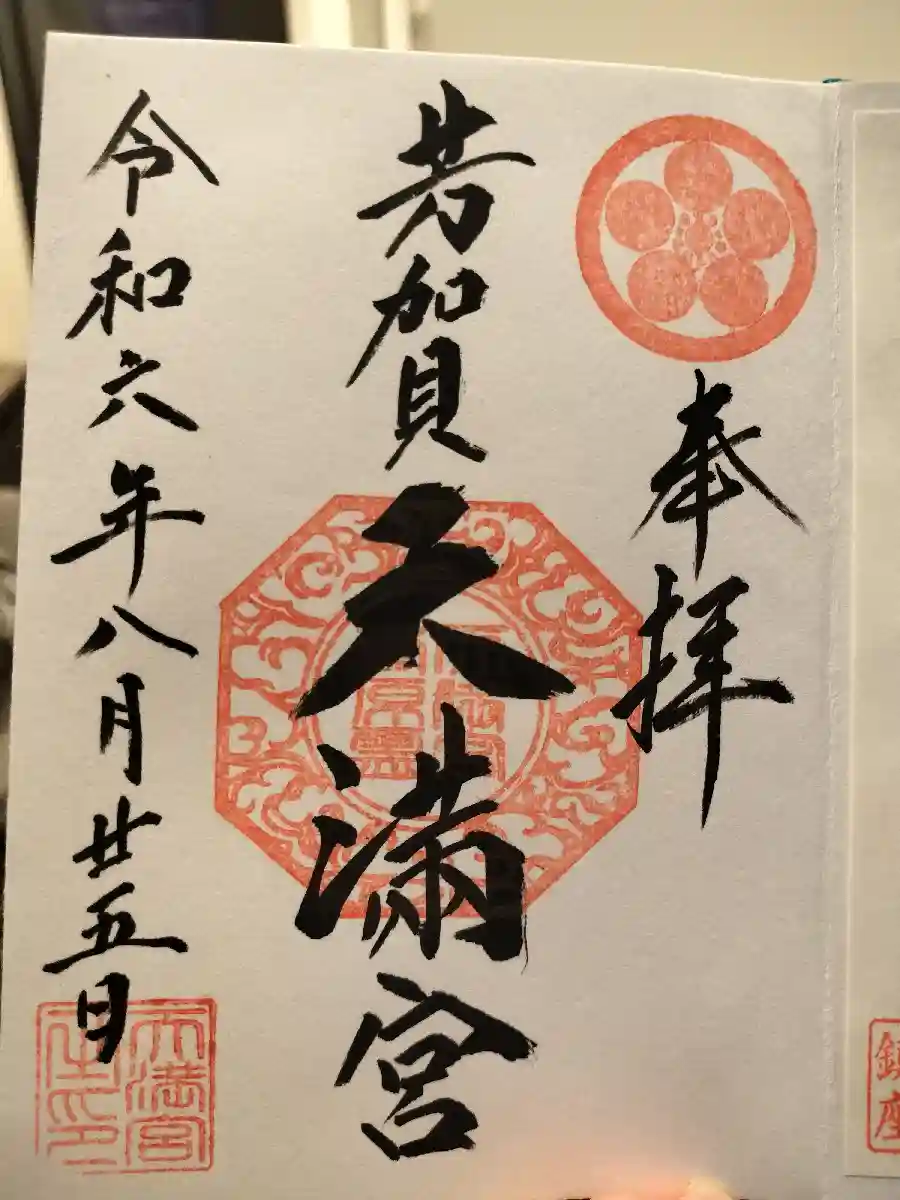 奉拝
芳賀天満宮
令和六年八月廿五日
天満宮
鎮座